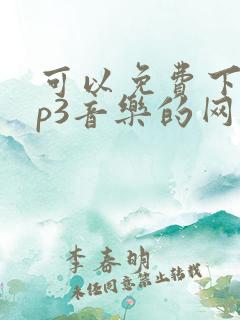 可以免费下
p3音樂的网
李春明
未经同意禁止转载